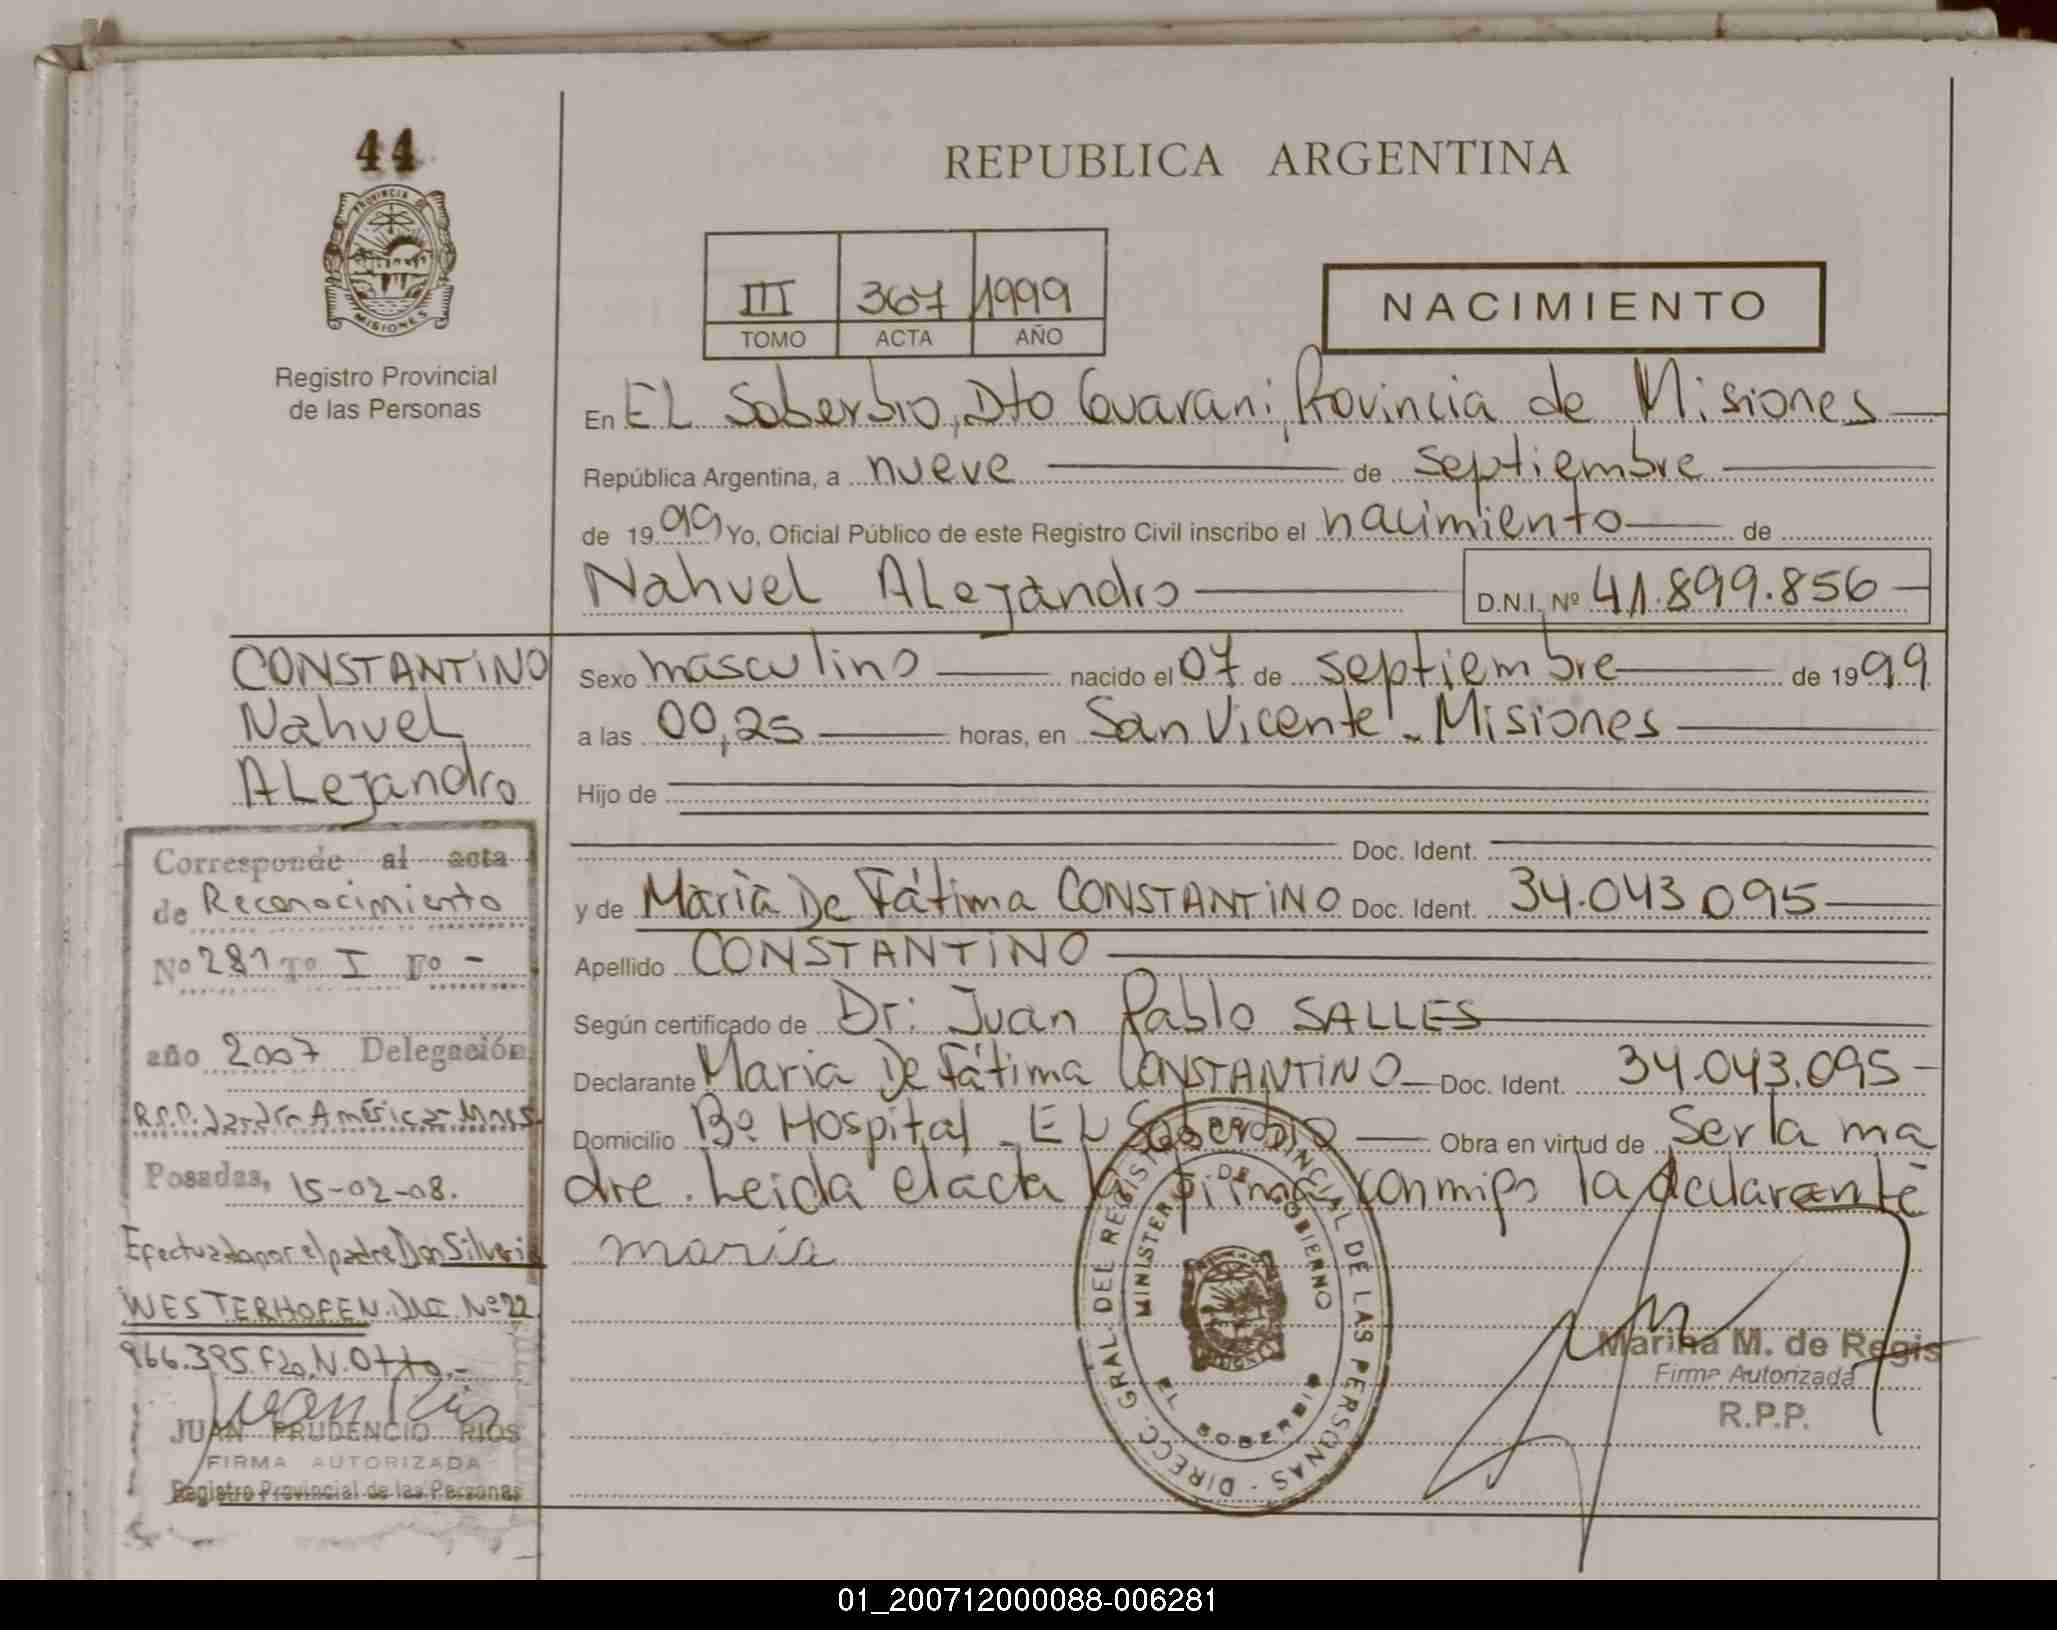 44
PROVINCIA DE
MISIONES
Registro Provincial
de las Personas
REPUBLICA ARGENTINA
III 367 1999
TOMO ACTA AÑO
NACIMIENTO
En EL Soberbio, Dto Guarani, Provincia de Misiones
República Argentina, a nueve de septiembre
de 1999 Yo, Oficial Público de este Registro Civil inscribo el nacimiento de
Nahuel ALejandro D.N.I. Nº 41.899.856
CONSTANTINO
Nahuel
ALejandro
Sexo masculino nacido el 07 de septiembre de 1999
a las 00,25 horas, en San Vicente - Misiones
Hijo de
Doc. Ident.
y de Maria De Fátima CONSTANTINO Doc. Ident. 34.043.095
Apellido CONSTANTINO
Según certificado de Dr: Juan Pablo SALLES
Declarante Maria De Fátima CONSTANTINO Doc. Ident. 34.043.095
Domicilio Bº Hospital - EL Soberbio Obra en virtud de Ser la ma
dre. Leida el acta la firma conmigo la declarante
maría
Corresponde al acta
de Reconocimiento
Nº 281 Tº I Fº -
año 2007 Delegación
R.P.P. América-Mnes
Posadas, 15-02-08.
Efectuada por el padre Don Silverio
WESTERHOFEN. DNI. Nº 22
966.395. Fdo. N. Otto.-
Juan Rios
JUAN PRUDENCIO RIOS
FIRMA AUTORIZADA
Registro Provincial de las Personas
DIRECC. GRAL. DEL REGISTRO PROVINCIAL DE LAS PERSONAS
MINISTERIO DE GOBIERNO
EL SOBERBIO
Marina M. de Regis
Firma Autorizada
R.P.P.
01_200712000088-006281